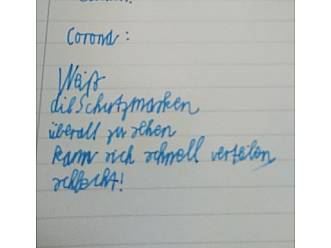 Corona:
Weiß
die Schutzmarken
überall zu sehen
Kann sich schnell verteilen
schlecht!